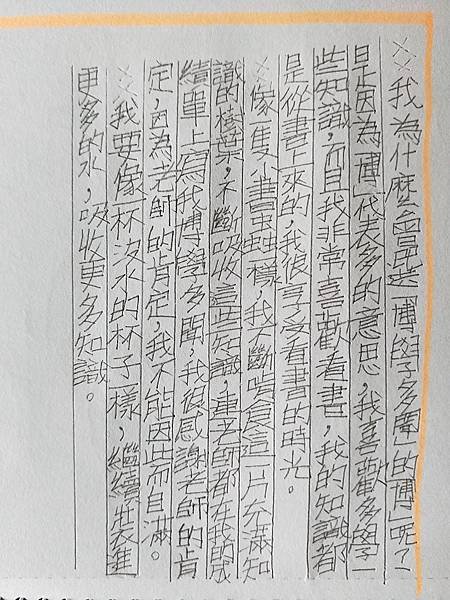 ××我為什麼會選「博學多聞」的「博」呢?
是因為「博」代表多的意思,我喜歡多學一
些知識,而且我非常喜歡看書,我的知識都
是從書上來的,我很享受看書的時光。
××像隻小書蟲一樣,我不斷啃食這一片充滿知
識的樹葉,不斷吸收這些知識,連老師都在我的成
績單上寫我博學多聞,我很感謝老師的肯
定,因為老師的肯定,我不能因此而自滿。
××我要像一杯沒水的杯子一樣,繼續裝進
更多的水,吸收更多知識。